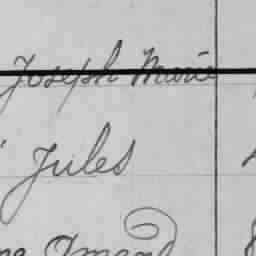 Joseph Marie
Jules
Amand